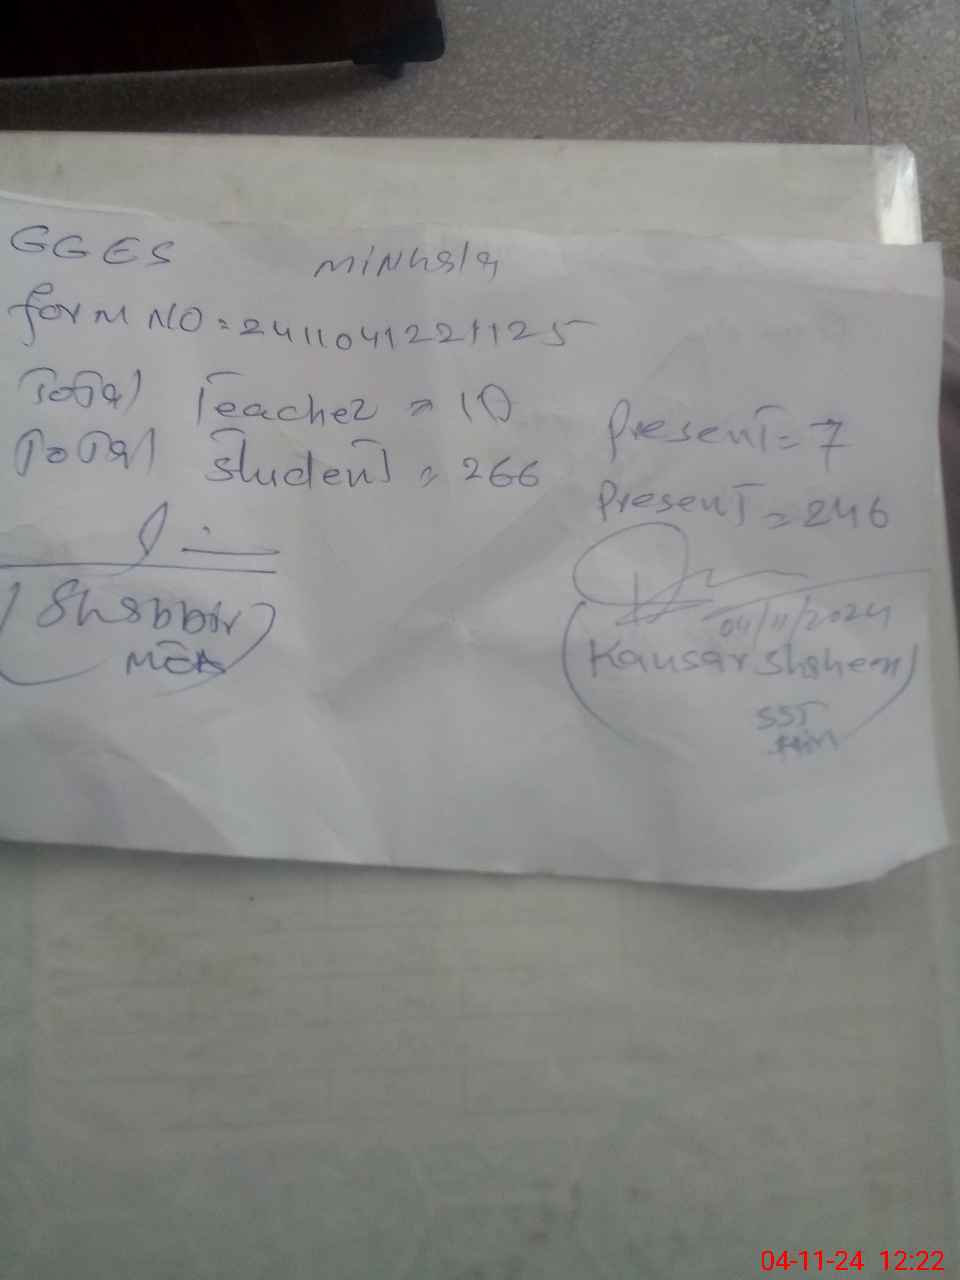 GGES Minhala
form NO = 2411041221125
Total Teacher = 10 Present = 7
Total student = 266 Present = 246
04/11/2024
(Shabbir) (Kausar Shaheen)
MEA SST
04-11-24 12:22